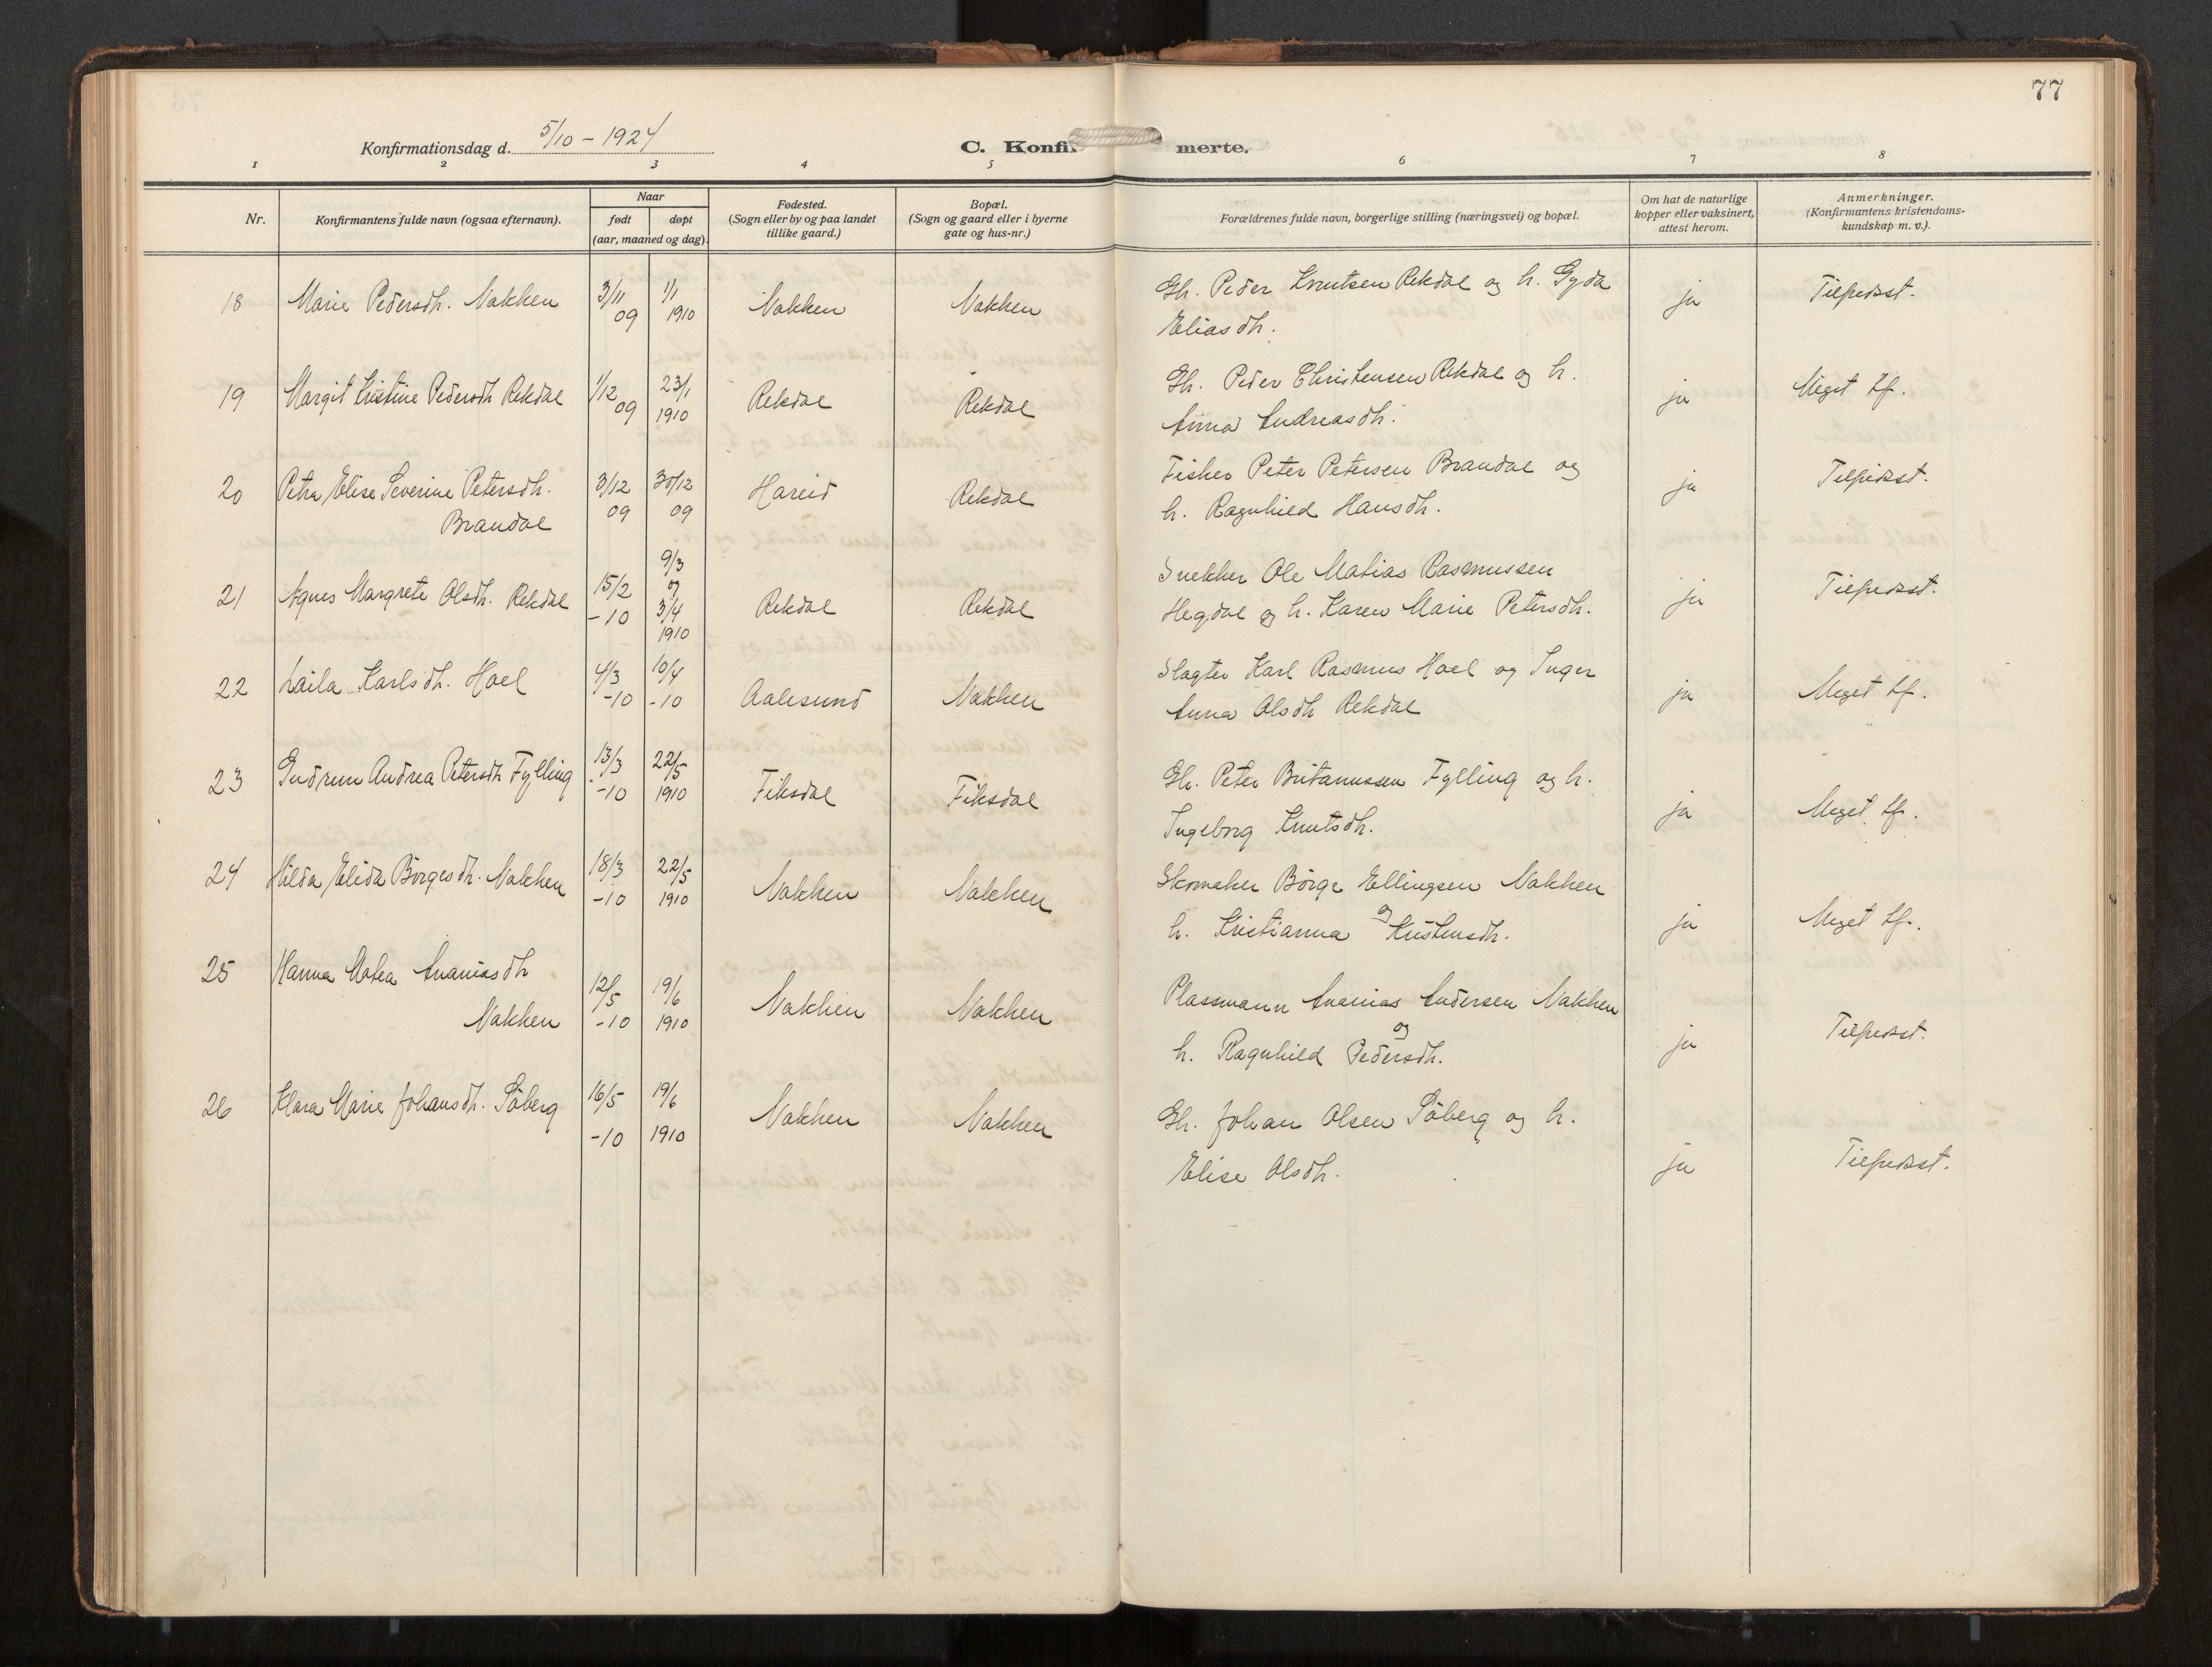 77
Konfirmationsdag d. 5/10 - 1924
C. Konfir merte.
1 2 3 4 5 6 7 8
Nr.
Konfirmantens fulde navn (ogsaa efternavn).
Naar
født døpt
(aar, maaned og dag).
Fødested.
(Sogn eller by og paa landet
tillike gaard.)
Bopæl.
(Sogn og gaard eller i byerne
gate og hus-nr.)
Forældrenes fulde navn, borgerlige stilling (næringsvei) og bopæl.
Om hat de naturlige
kopper eller vaksinert,
attest herom.
Anmerkninger.
(Konfirmantens kristendoms-
kundskap m. v.).
18 Marie Pedersdh. Nakken 3/11 09 1/1 1910 Nakken Nakken Gh. Peder Knutsen Rekdal og h. Gyda
Eliasdh. ja Tilfredsst.
19 Margit Kristine Pedersdh Rekdal 1/12 09 23/1 1910 Rekdal Rekdal Gh. Peder Christensen Rekdal og h.
Anna Andreasdh. ja Meget tf.
20 Petra Elise Severine Petersdh.
Brandal 3/12 09 30/12 09 Hareid Rekdal Fisker Peter Petersen Brandal og
h. Ragnhild Hansdh. ja Tilfredsst.
21 Agnes Margrete Olsdh. Rekdal 15/2 -10 9/3 og 3/4 1910 Rekdal Rekdal Snekker Ole Matias Rasmussen
Hegdal og h. Karen Marie Petersdh. ja Tilfredsst.
22 Laila Karlsdh. Hoel 4/3 -10 10/4 -10 Aalesund Nakken Slagter Karl Rasmus Hoel og Inger
Anna Olsdh Rekdal ja Meget tf.
23 Gudrun Andrea Petersdh Fylling 13/3 -10 22/5 1910 Fiksdal Fiksdal Gh. Peter Britanussen Fylling og h.
Ingeborg Knutsdh. ja Meget tf.
24 Hilda Elida Börgesdh. Nakken 18/3 -10 22/5 1910 Nakken Nakken Skomaker Börge Ellingsen Nakken
og
h. Kristianna Kristensdh. ja Meget tf.
25 Hanna Matea Ananiasdh
Nakken 12/5 -10 19/6 1910 Nakken Nakken Plassmann Ananias Andersen Nakken
og
h. Ragnhild Pedersdh. ja Tilfredsst.
26 Klara Marie Johansdh. Söberg 16/5 -10 19/6 1910 Nakken Nakken Gh. Johan Olsen Söberg og h.
Elise Olsdh. ja Tilfredsst.